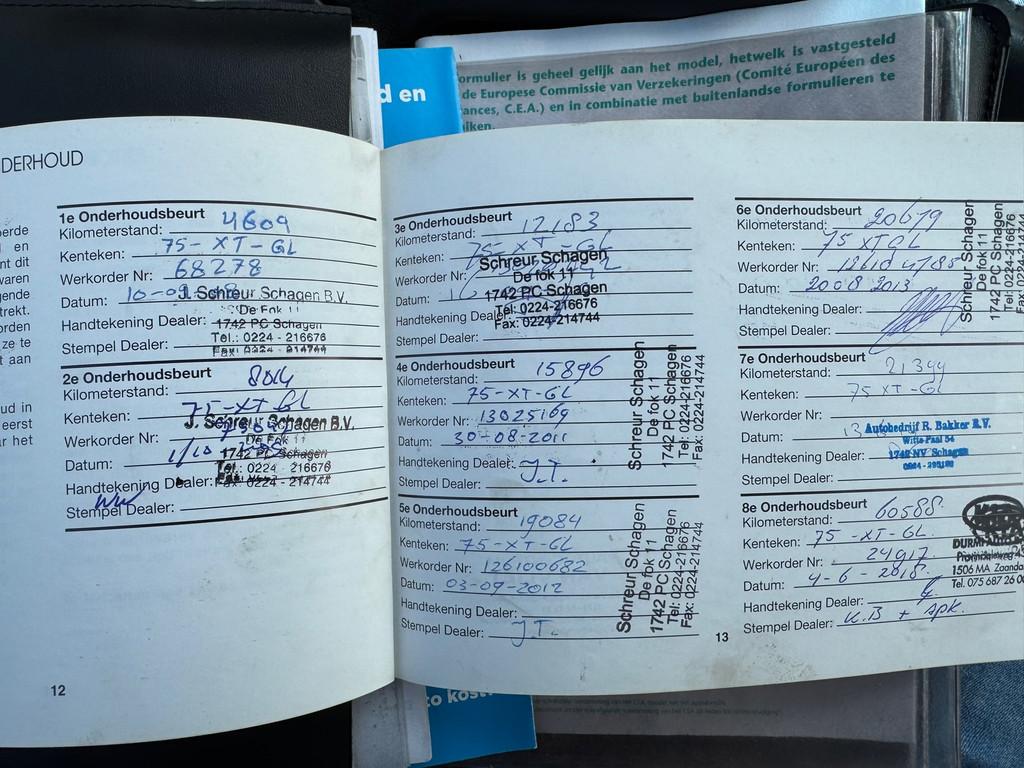 ormulier is geheel gelijk aan het model, hetwelk is vastgesteld
de Europese Commissie van Verzekeringen (Comité Européen des
ances, C.E.A.) en in combinatie met buitenlandse formulieren te
iken.
d en
DERHOUD
erde
en
nt dit
waren
gende
trekt.
orden
ze te
t aan
ud in
eerst
r het
1e Onderhoudsbeurt
Kilometerstand: 4609
Kenteken: 75-XT-GL
Werkorder Nr: 68278
Datum: 10-
Handtekening Dealer:
Stempel Dealer:
J. Schreur Schagen B.V.
De Fok 11
1742 PC Schagen
Tel.: 0224 - 216676
Fax: 0224 - 214744
2e Onderhoudsbeurt
Kilometerstand: 8014
Kenteken: 75-XT-GL
Werkorder Nr:
Datum: 1/10
Handtekening Dealer:
Stempel Dealer:
J. Schreur Schagen B.V.
De Fok 11
1742 PC Schagen
Tel.: 0224 - 216676
Fax: 0224 - 214744
12
3e Onderhoudsbeurt
Kilometerstand: 12183
Kenteken: 75-XT-GL
Werkorder Nr:
Datum:
Handtekening Dealer:
Stempel Dealer:
Schreur Schagen
De fok 11
1742 PC Schagen
Tel: 0224-216676
Fax: 0224-214744
4e Onderhoudsbeurt
Kilometerstand: 15896
Kenteken: 75-XT-GL
Werkorder Nr: 13025169
Datum: 30-08-2011
Handtekening Dealer: J.T.
Stempel Dealer:
Schreur Schagen
De fok 11
1742 PC Schagen
Tel: 0224-216676
Fax: 0224-214744
5e Onderhoudsbeurt
Kilometerstand: 19084
Kenteken: 75-XT-GL
Werkorder Nr: 126100682
Datum: 03-09-2012
Handtekening Dealer:
Stempel Dealer: J.T.
Schreur Schagen
De fok 11
1742 PC Schagen
Tel: 0224-216676
Fax: 0224-214744
6e Onderhoudsbeurt
Kilometerstand: 20679
Kenteken: 75 XTGL
Werkorder Nr:
Datum: 20 08 2013
Handtekening Dealer:
Stempel Dealer:
Schreur Schagen
De fok 11
1742 PC Schagen
Tel: 0224-216676
Fax: 0224-2147
7e Onderhoudsbeurt
Kilometerstand: 21399
Kenteken: 75 XT-GL
Werkorder Nr:
Datum: 13
Handtekening Dealer:
Stempel Dealer:
Autobedrijf R. Bakker B.V.
Witte Paal 34
1742 NV Schagen
8e Onderhoudsbeurt
Kilometerstand: 60588.
Kenteken: 75 -XT-GL.
Werkorder Nr: 24917
Datum: 4-6-2018.
Handtekening Dealer:
Stempel Dealer: K.B + APK.
1506 MA Zaanda
Tel. 075 687 26 00
13